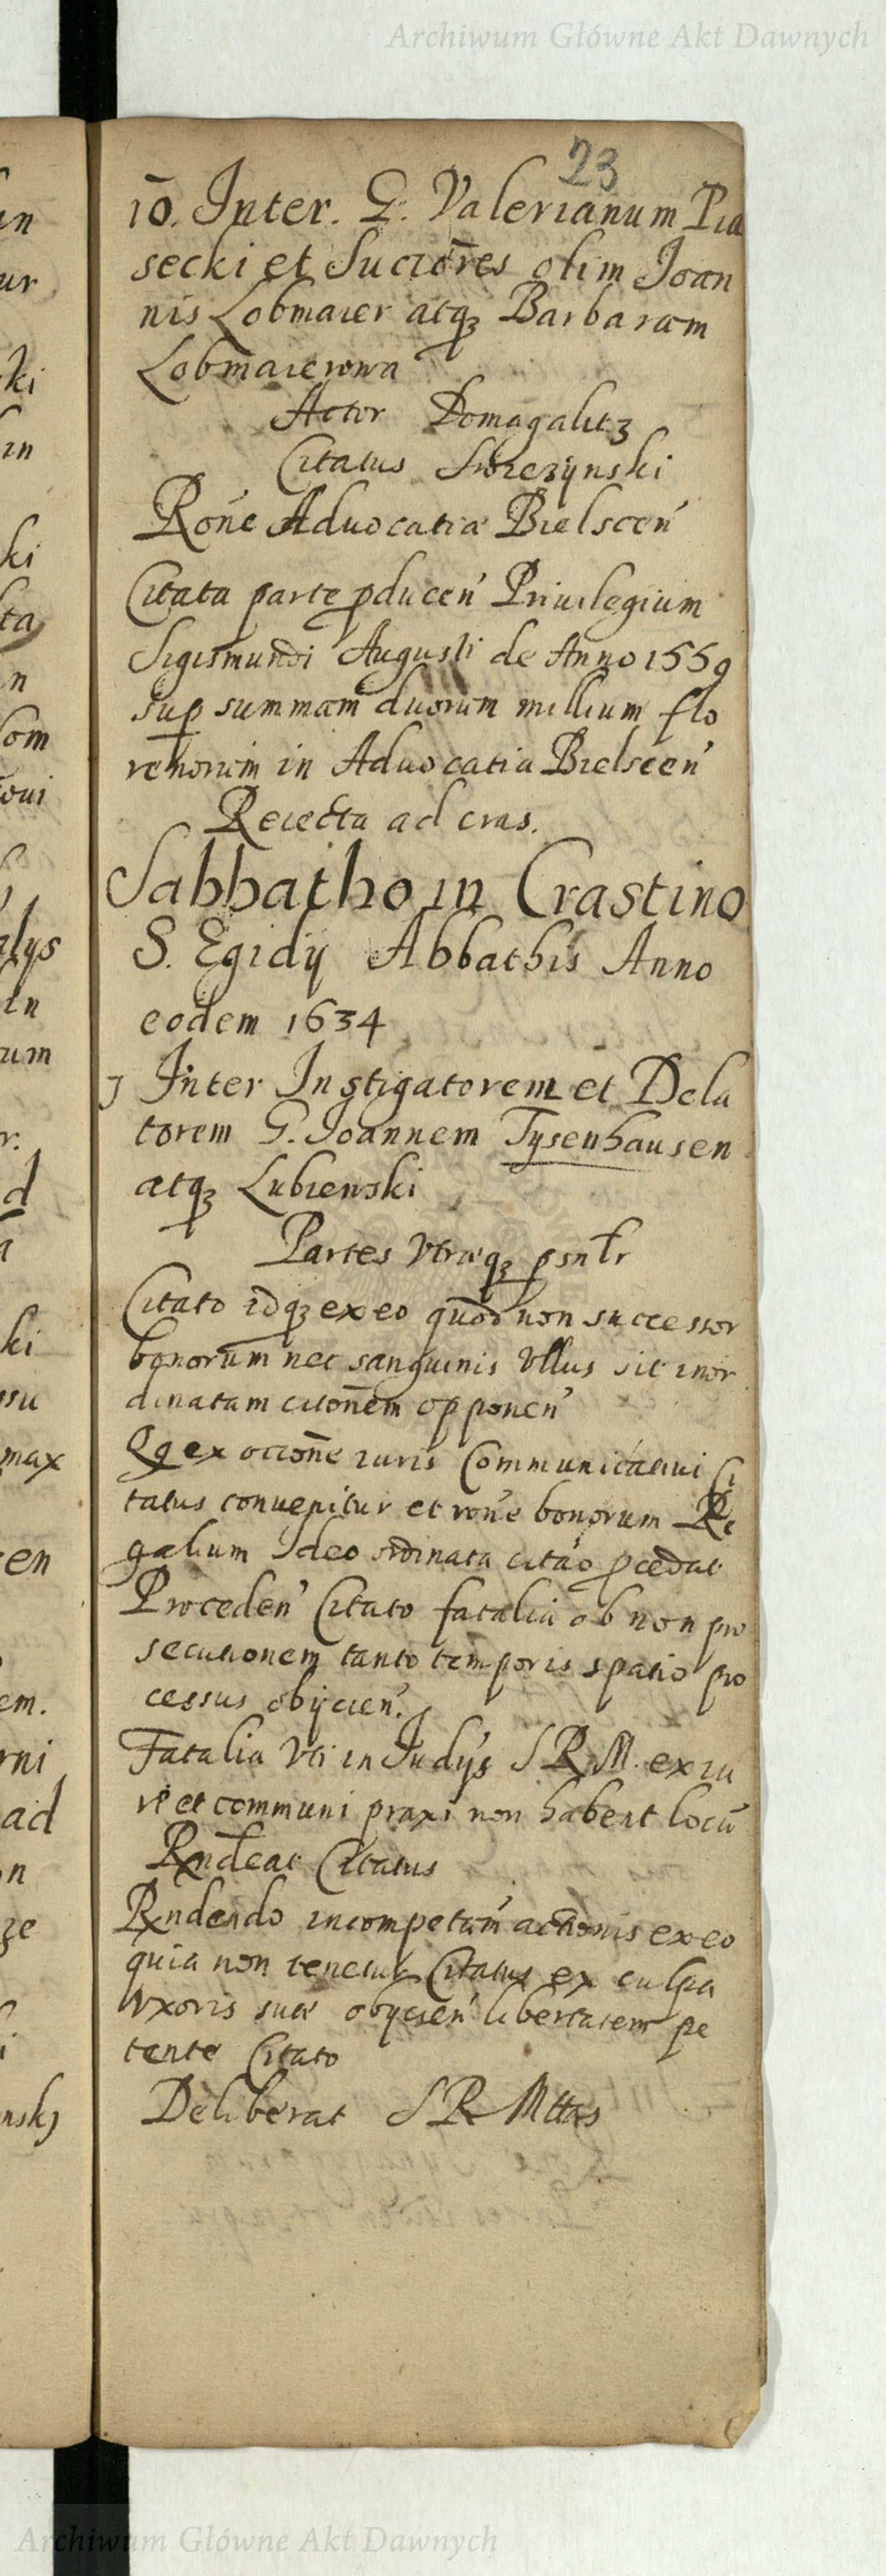 Archiwum Główne Akt Dawnych
23
10. Inter. G. Valerianum Pia
secki et Succōres olim Joan
nis Lobmaier atqꝫ Barbaram
Lobmaierowa
Actor Domagalicz
Citatus Swiezynski
Rōne Aduocatiæ Bielscen̄
Citata parte ꝓducen̄ Priuilegium
Sigismundi Augusti de Anno 1559
suꝑ summam duorum millium flo
renorum in Aduocatia Bielscen̄
Reiecta ad cras.
Sabbatho in Crastino
S. Egidij Abbathis Anno
eodem 1634
Inter Instigatorem et Dela
torem G. Joannem Tysenhausen
atqꝫ Lubienski
Partes Vtræqꝫ p̄sn̄tr
Citato idqꝫ ex eo quod non successor
bonorum nec sanguinis Vllus sit inor
dinatam citōnem opponen̄
ex occōne iuris Communicatiui Ci
tatus conuenitur et rōne bonorum Re
galium Ideo ordinata citāo ꝓcedat
Proceden̄ Citato fatalia ob non pro
secutionem tanto temporis spatio pro
cessus obijcien̄.
Fatalia Vti in Judijs S R M. ex iu
re et communi praxi non habent locū
Rn̄deat Citatus
Rn̄dendo incompetam̄ actionis ex eo
quia non tenetur Citatus ex culpa
Vxoris suæ obijcien̄ libertatem pe
tente Citato
Deliberat S R Mttas
ki
in
ki
ta
n
om
oui
alys
in
um
r.
d
ki
su
max
en
em.
rni
ad
n
ze
nskj
Archiwum Główne Akt Dawnych